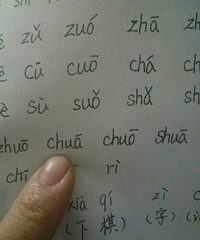 zǔ zuó zhā
cū cuō chá ch
sù suǒ shǎ sh
zhuō chuā chuō shuā
chī rì
xià qí zì
(下棋) (字)